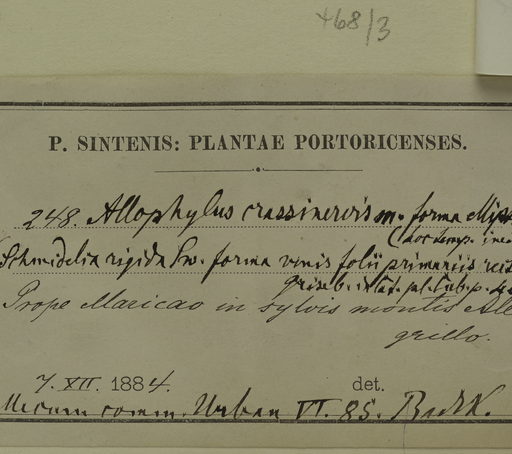 468/3
P. SINTENIS: PLANTAE PORTORICENSES.
248. Allophylus crassinervis m. forma
(hoc temp. ined
Schmidelia rigida Sw. forma foliis primariis
Griseb. in lat. pl. Cub. p.
Prope Maricao in sylvis montis Ale
grillo.
7. XII. 1884. det.
Mecum comm. Urban VI. 85. Radlk.